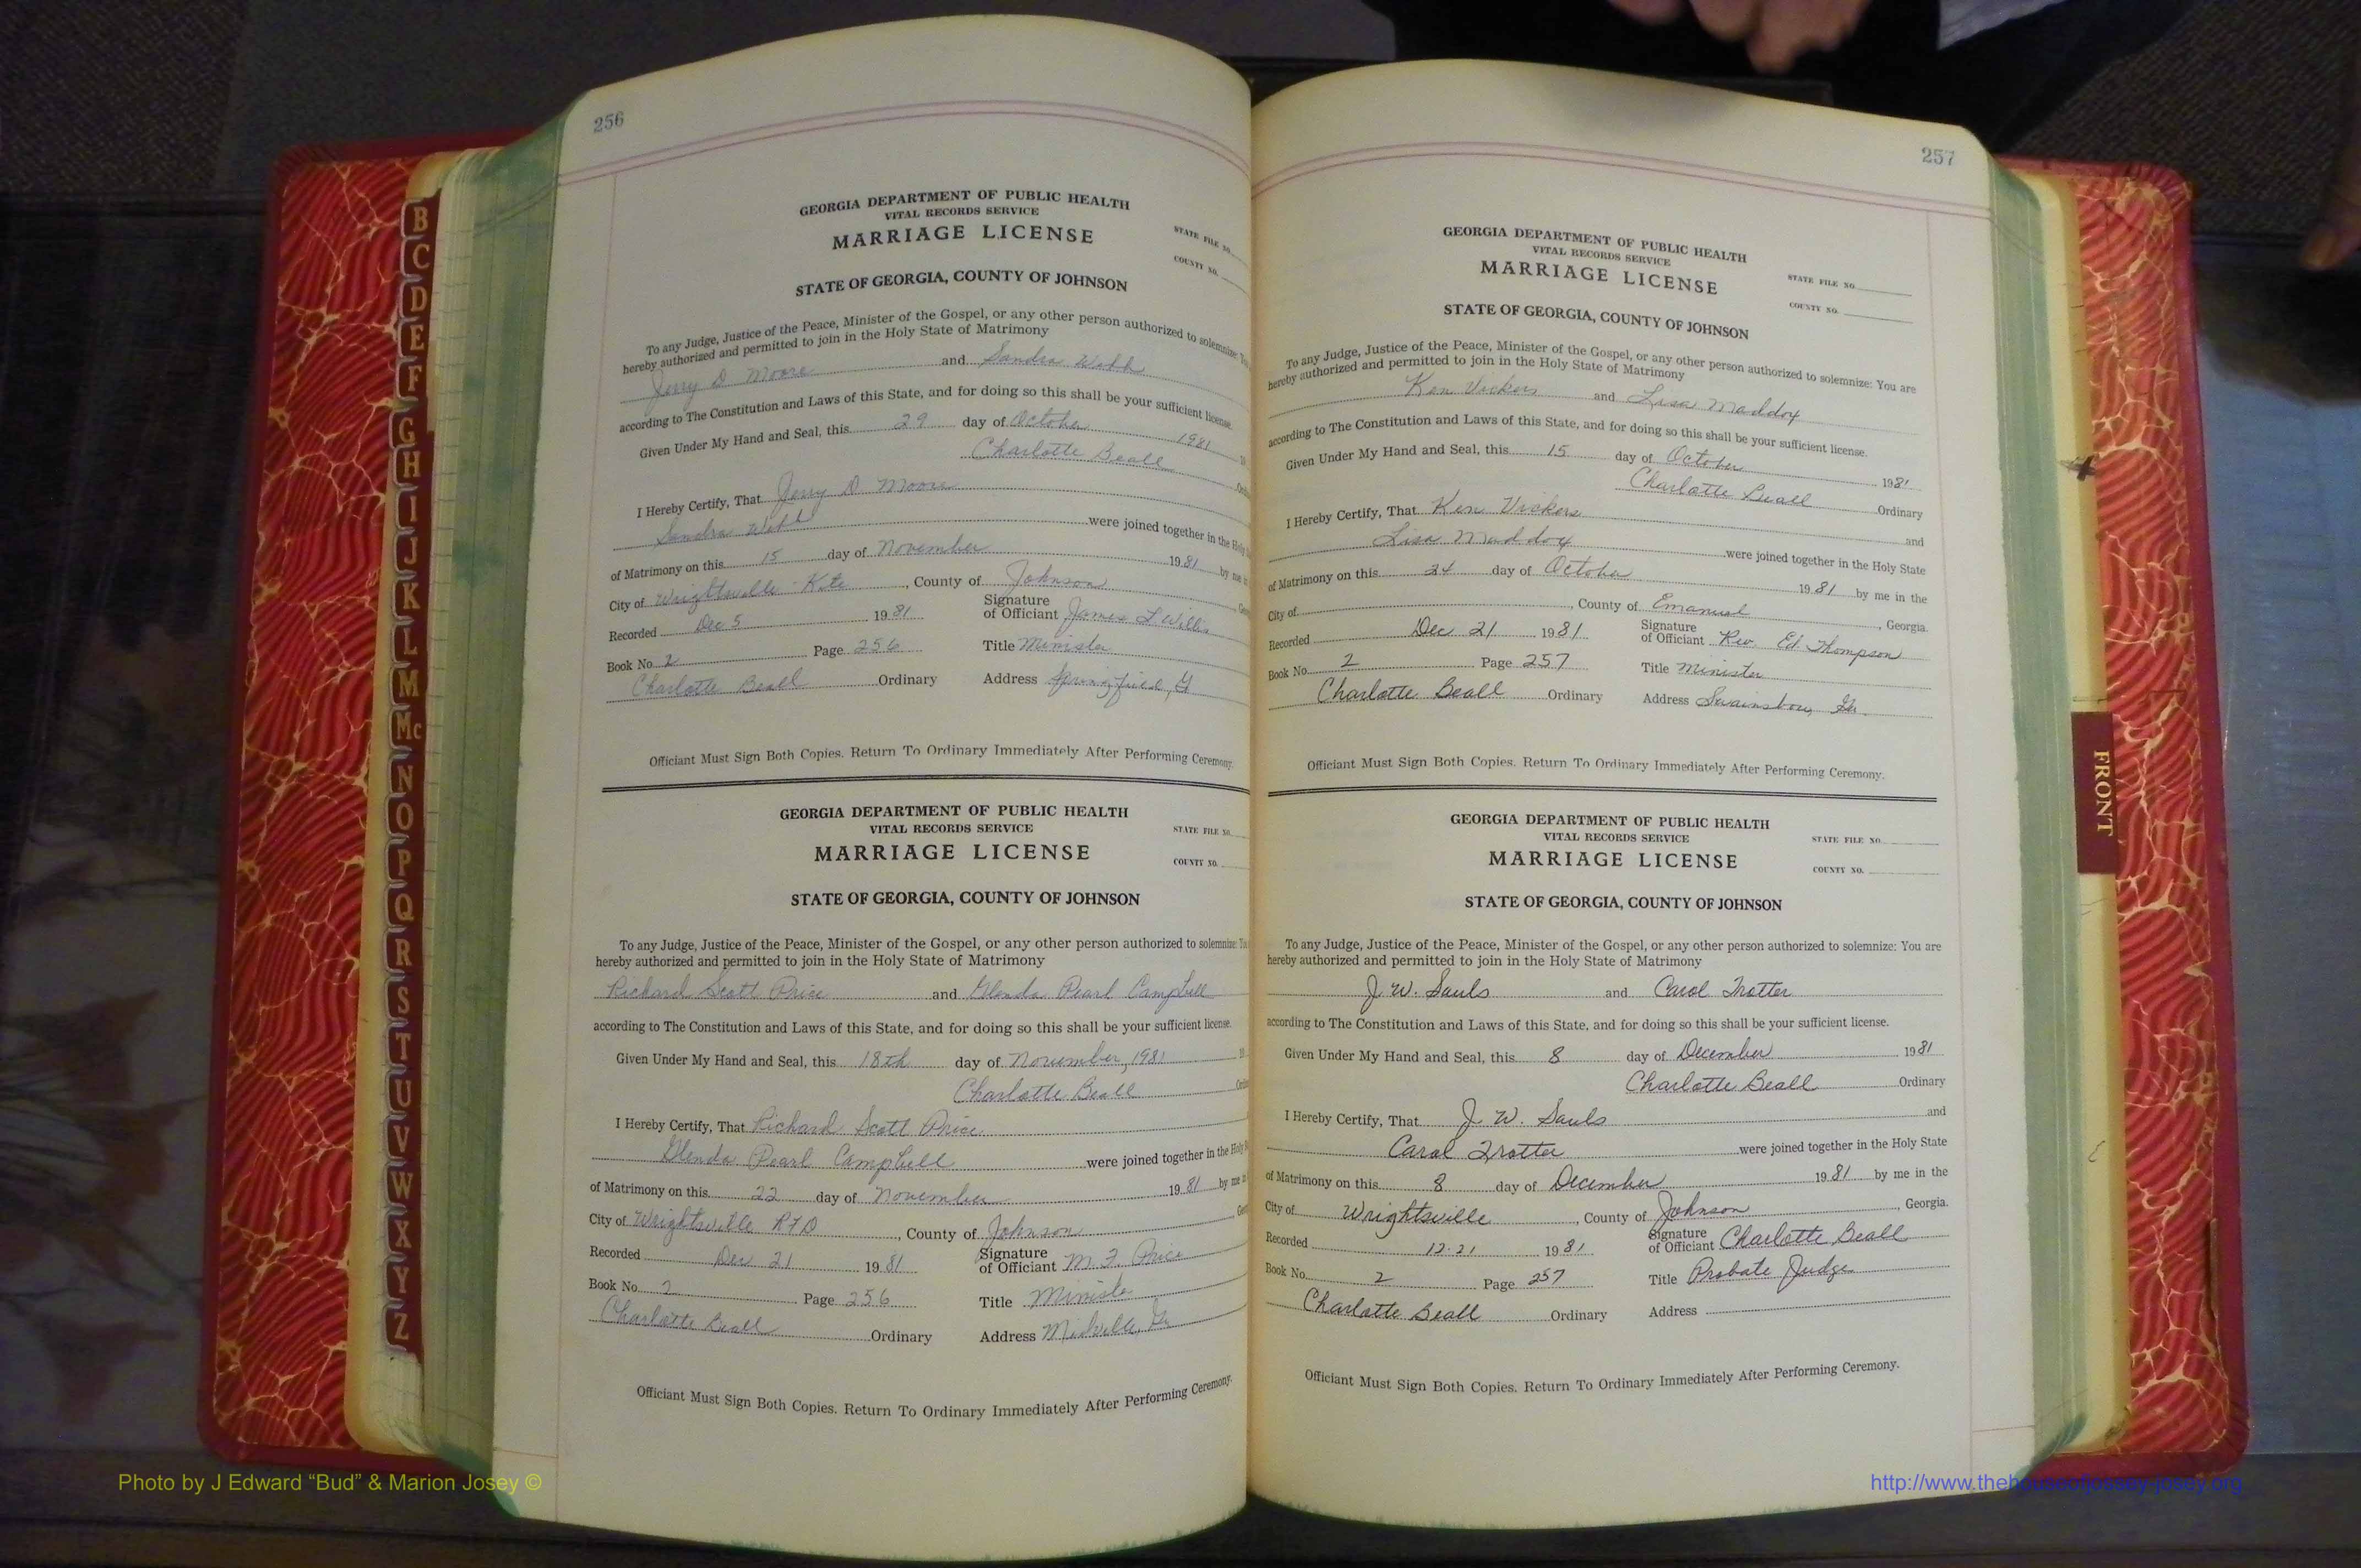 256
GEORGIA DEPARTMENT OF PUBLIC HEALTH
VITAL RECORDS SERVICE
MARRIAGE LICENSE
STATE FILE NO.
COUNTY NO.
STATE OF GEORGIA, COUNTY OF JOHNSON
To any Judge, Justice of the Peace, Minister of the Gospel, or any other person authorized to solemnize:
hereby authorized and permitted to join in the Holy State of Matrimony
Jerry D Moore and Sandra Webb
according to The Constitution and Laws of this State, and for doing so this shall be your sufficient license.
Given Under My Hand and Seal, this 29 day of October 1981
Charlotte Beall
I Hereby Certify, That Jerry D Moore
Sandra Webb were joined together in the Holy
of Matrimony on this 15 day of November 1981 by me in
City of Wrightsville Rt, County of Johnson
Recorded Dec 5 1981 Signature of Officiant James L Willis
Book No. 2 Page 256 Title Minister
Charlotte Beall Ordinary Address Springfield, G
Officiant Must Sign Both Copies. Return To Ordinary Immediately After Performing Ceremony.
GEORGIA DEPARTMENT OF PUBLIC HEALTH
VITAL RECORDS SERVICE
MARRIAGE LICENSE
STATE FILE NO.
COUNTY NO.
STATE OF GEORGIA, COUNTY OF JOHNSON
To any Judge, Justice of the Peace, Minister of the Gospel, or any other person authorized to solemnize:
hereby authorized and permitted to join in the Holy State of Matrimony
Richard Scott Price and Glenda Pearl Campbell
according to The Constitution and Laws of this State, and for doing so this shall be your sufficient license.
Given Under My Hand and Seal, this 18th day of November, 1981
Charlotte Beall
I Hereby Certify, That Richard Scott Price
Glenda Pearl Campbell were joined together in the Holy
of Matrimony on this 22 day of November 1981 by me
City of Wrightsville RFD, County of Johnson
Recorded Dec 21 1981 Signature of Officiant M. F. Price
Book No. 2 Page 256 Title Minister
Charlotte Beall Ordinary Address Midville, Ga
Officiant Must Sign Both Copies. Return To Ordinary Immediately After Performing Ceremony.
257
GEORGIA DEPARTMENT OF PUBLIC HEALTH
VITAL RECORDS SERVICE
MARRIAGE LICENSE
STATE FILE NO.
COUNTY NO.
STATE OF GEORGIA, COUNTY OF JOHNSON
To any Judge, Justice of the Peace, Minister of the Gospel, or any other person authorized to solemnize: You are
hereby authorized and permitted to join in the Holy State of Matrimony
Ken Vickers and Lisa Maddox
according to The Constitution and Laws of this State, and for doing so this shall be your sufficient license.
Given Under My Hand and Seal, this 15 day of October 1981
Charlotte Beall Ordinary
I Hereby Certify, That Ken Vickers and
Lisa Maddox were joined together in the Holy State
of Matrimony on this 24 day of October 1981 by me in the
City of , County of Emanuel, Georgia.
Recorded Dec 21 1981 Signature of Officiant Rev. Ed Thompson
Book No. 2 Page 257 Title Minister
Charlotte Beall Ordinary Address Swainsboro, Ga.
Officiant Must Sign Both Copies. Return To Ordinary Immediately After Performing Ceremony.
GEORGIA DEPARTMENT OF PUBLIC HEALTH
VITAL RECORDS SERVICE
MARRIAGE LICENSE
STATE FILE NO.
COUNTY NO.
STATE OF GEORGIA, COUNTY OF JOHNSON
To any Judge, Justice of the Peace, Minister of the Gospel, or any other person authorized to solemnize: You are
hereby authorized and permitted to join in the Holy State of Matrimony
J. W. Sauls and Carol Trotter
according to The Constitution and Laws of this State, and for doing so this shall be your sufficient license.
Given Under My Hand and Seal, this 8 day of December 1981
Charlotte Beall Ordinary
I Hereby Certify, That J. W. Sauls and
Carol Trotter were joined together in the Holy State
of Matrimony on this 8 day of December 1981 by me in the
City of Wrightsville, County of Johnson, Georgia.
Recorded 12-21 1981 Signature of Officiant Charlotte Beall
Book No. 2 Page 257 Title Probate Judge
Charlotte Beall Ordinary Address
Officiant Must Sign Both Copies. Return To Ordinary Immediately After Performing Ceremony.
B
C
D
E
F
G
H
I
J
K
L
M
Mc
N
O
P
Q
R
S
T
U
V
W
X
Y
Z
FRONT
Photo by J Edward “Bud” & Marion Josey ©
http://www.thehouseofjossey-josey.org